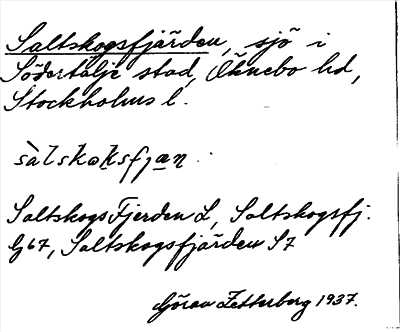 Saltskogsfjärden, sjö i
Södertälje stad, Öknebo hd,
Stockholms l.
sàlskoksfjan
Saltskogs Fjerden L, Saltskogsfj.
G67, Saltskogsfjärden S7
Göran Zetterberg 1937.